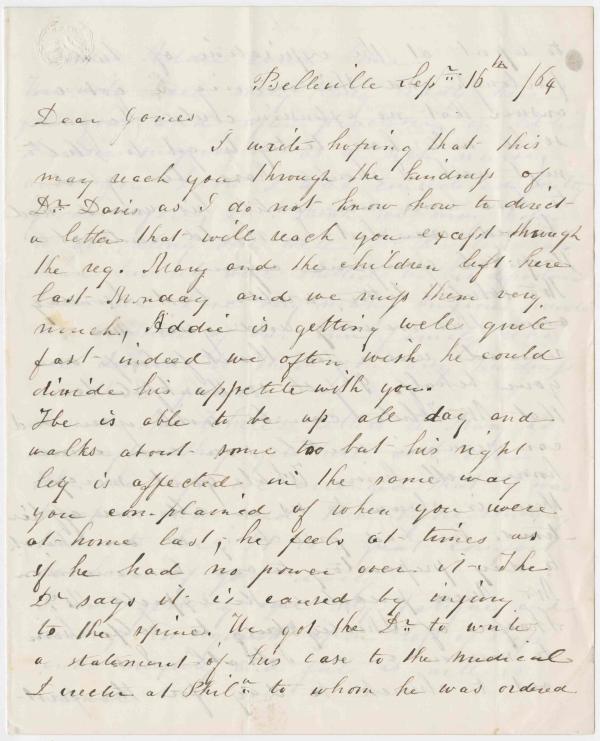 Belleville Sepr 16th /64
Dear James
I write hoping that this
may reach you through the kindness of
Dr Davis as I do not know how to direct
a letter that will reach you except through
the reg. Mary and the children left here
last Monday and we miss them very
much, Addie is getting well quite
fast indeed we often wish he could
divide his appetite with you.
He is able to be up all day and
walks about some too but his right
leg is affected in the same way
you complained of when you were
at home last, he feels at times as
if he had no power over it. The
Dr says it is caused by injury
to the spine. He got the Dr to write
a statement of his case to the Medical
Director at Phila to whom he was ordered